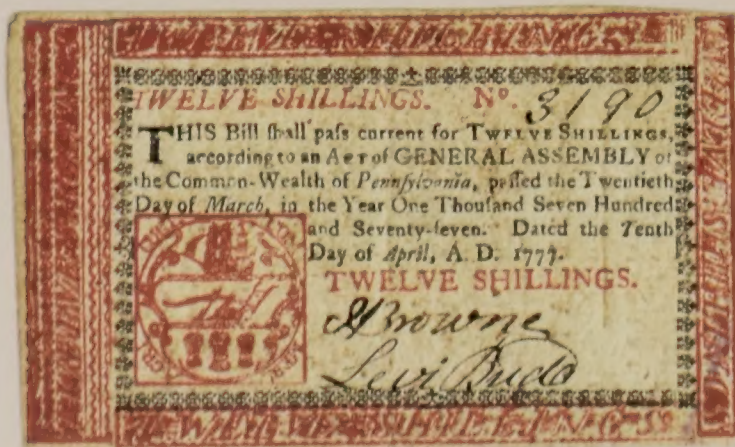 TWELVE SHILLINGS. Nº. 3190
THIS Bill ſhall paſs current for TWELVE SHILLINGS,
according to an ACT of GENERAL ASSEMBLY of
the Common-Wealth of Pennſylvania, paſſed the Twentieth
Day of March, in the Year One Thouſand Seven Hundred
and Seventy-ſeven. Dated the Tenth
Day of April, A. D. 1777.
TWELVE SHILLINGS.
Browne
Levi Budd